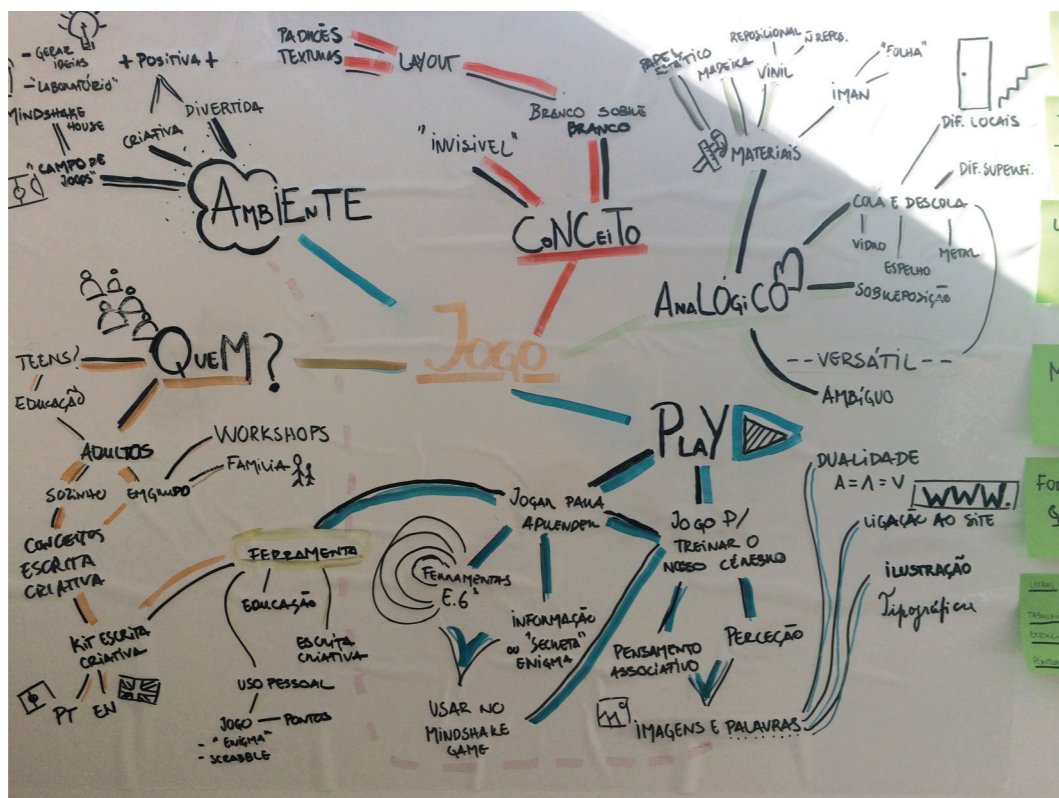 - GERAR
IDEIAS
- "LABORATÓRIO"
MINDSHAKE
HOUSE
"CAMPO DE
JOGOS"
+ POSITIVA +
CRIATIVA
DIVERTIDA
AMBIENTE
PADRÕES
TEXTURAS
LAYOUT
"INVISIVEL"
BRANCO SOBRE
BRANCO
CONCEITO
PAPEL
MADEIRA
REPOSICIONAL
Ñ REPOS.
VINIL
"FOLHA"
IMAN
MATERIAIS
DIF. LOCAIS
DIF. SUPERFI.
COLA E DESCOLA
VIDRO
ESPELHO
METAL
SOBREPOSIÇÃO
ANALÓGICO
-- VERSÁTIL --
AMBÍGUO
JOGO
QUEM?
TEENS?
EDUCAÇÃO
ADULTOS
SOZINHO
EM GRUPO
WORKSHOPS
FAMILIA
CONCEITOS
ESCRITA
CRIATIVA
KIT ESCRITA
CRIATIVA
PT
EN
FERRAMENTA
EDUCAÇÃO
ESCRITA
CRIATIVA
USO PESSOAL
JOGO — PONTOS
- "ENIGMA"
- SCRABBLE
PLAY
JOGAR PARA
APRENDER
FERRAMENTAS
E.6²
INFORMAÇÃO
OU "SECRETA"
ENIGMA
USAR NO
MINDSHAKE
GAME
JOGO P/
TREINAR O
NOSSO CÉREBRO
PENSAMENTO
ASSOCIATIVO
PERCEÇÃO
IMAGENS E PALAVRAS
DUALIDADE
A = Λ = V
WWW.
LIGAÇÃO AO SITE
ILUSTRAÇÃO
Tipográfica